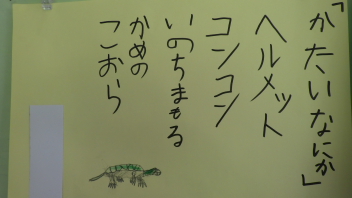 「かたいなにか」
ヘルメット
コンコン
いのちまもる
かめの
こおら